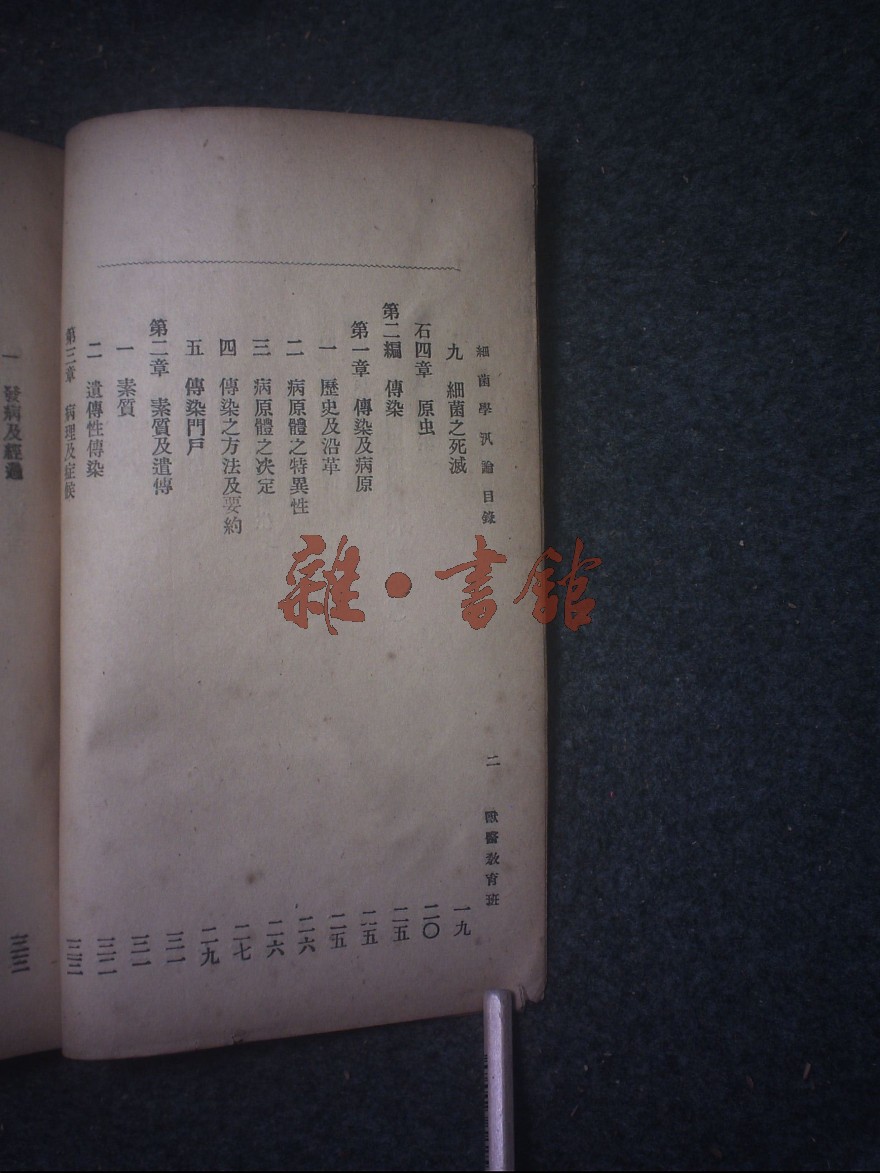 細菌學汎論目錄 二 獸醫教育班
九 細菌之死滅 一九
石四章 原虫 二〇
第二編 傳染 二五
第一章 傳染及病原 二五
一 歷史及沿革 二五
二 病原體之特異性 二六
三 病原體之决定 二六
四 傳染之方法及要約 二七
五 傳染門戶 二九
第二章 素質及遺傳 三一
一 素質 三一
二 遺傳性傳染 三二
第三章 病理及症候 三三
一 發病及經過 三三
雜·書館